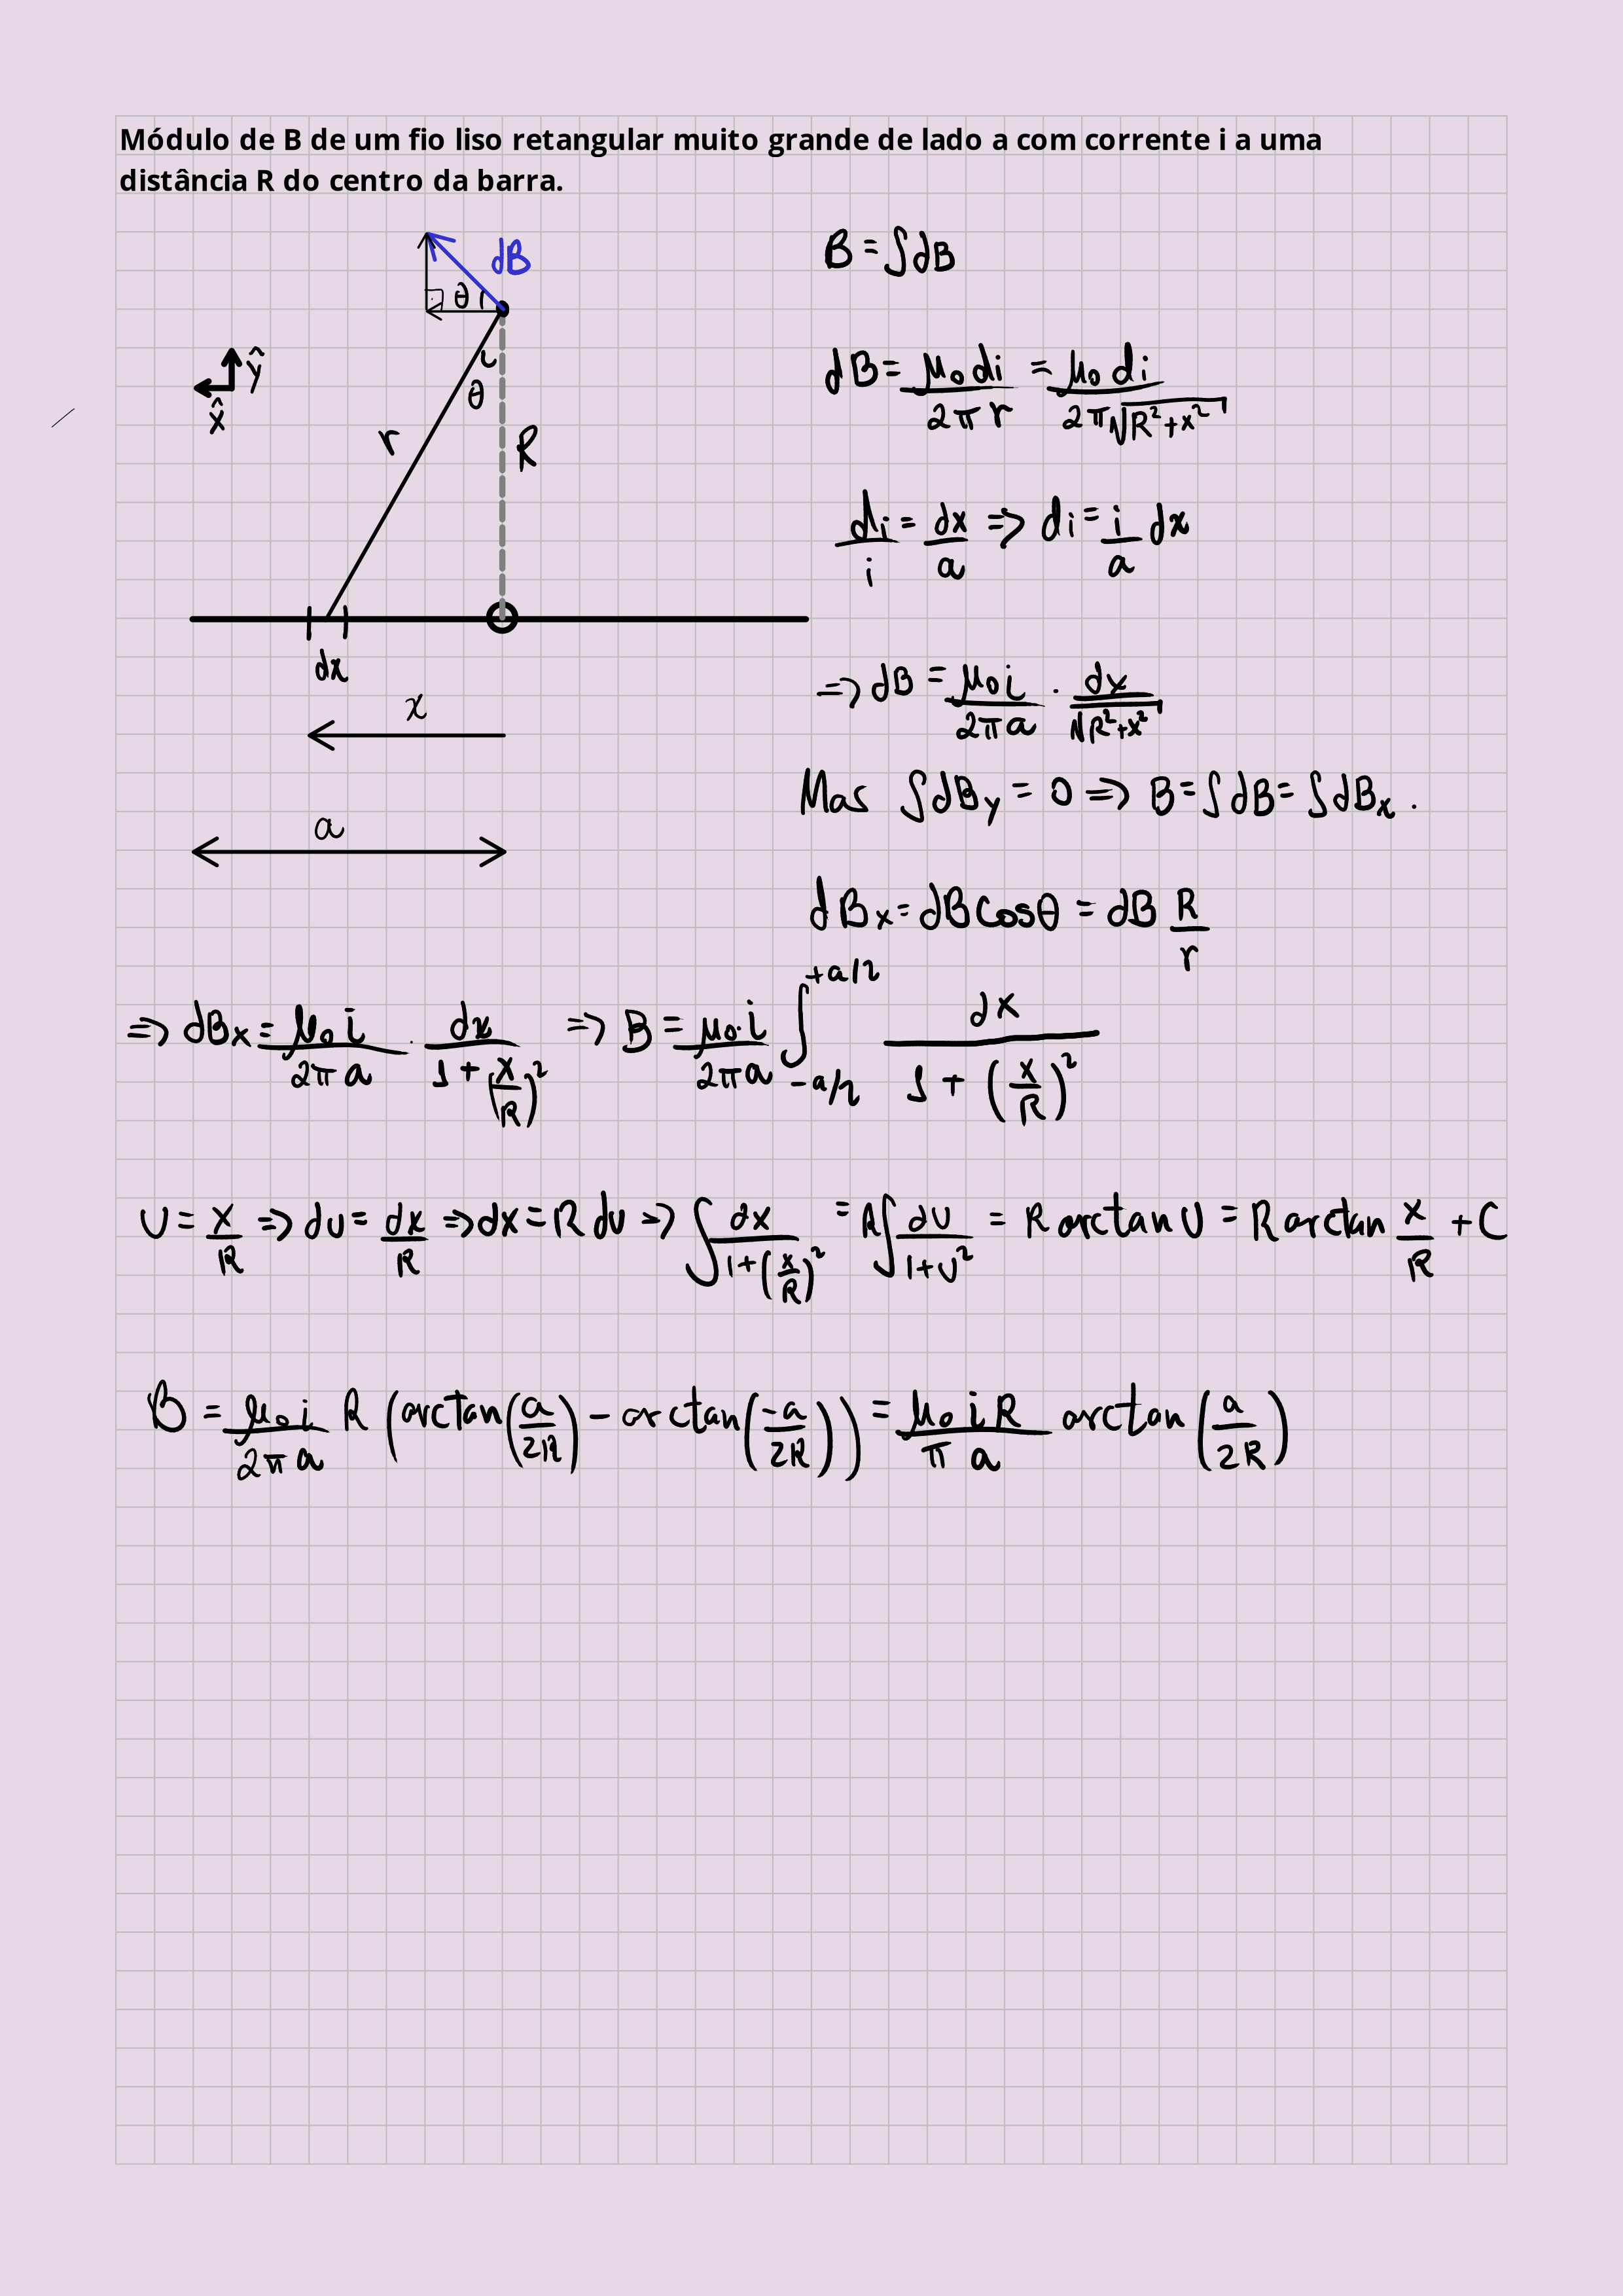 Módulo de B de um fio liso retangular muito grande de lado a com corrente i a uma
distância R do centro da barra.
dB
θ
ŷ
x̂
θ
r
R
dx
x
a
B = ∫dB
dB = μ₀ di / 2π r = μ₀ di / 2π√(R²+x²)
di / i = dx / a ⇒ di = i / a dx
⇒ dB = μ₀ i / 2π a · dx / √(R²+x²)
Mas ∫dB_y = 0 ⇒ B = ∫dB = ∫dB_x .
dB_x = dB cosθ = dB R / r
⇒ dB_x = μ₀ i / 2π a · dx / (1 + (x/R)²) ⇒ B = μ₀ · i / 2π a ∫_{-a/2}^{+a/2} dx / (1 + (x/R)²)
U = x/R ⇒ du = dx/R ⇒ dx = R du ⇒ ∫ dx / (1+(x/R)²) = R∫ du / (1+U²) = R arctan U = R arctan x/R + C
B = μ₀ i / 2π a R (arctan(a/2R) − arctan(-a/2R)) = μ₀ i R / π a arctan (a/2R)